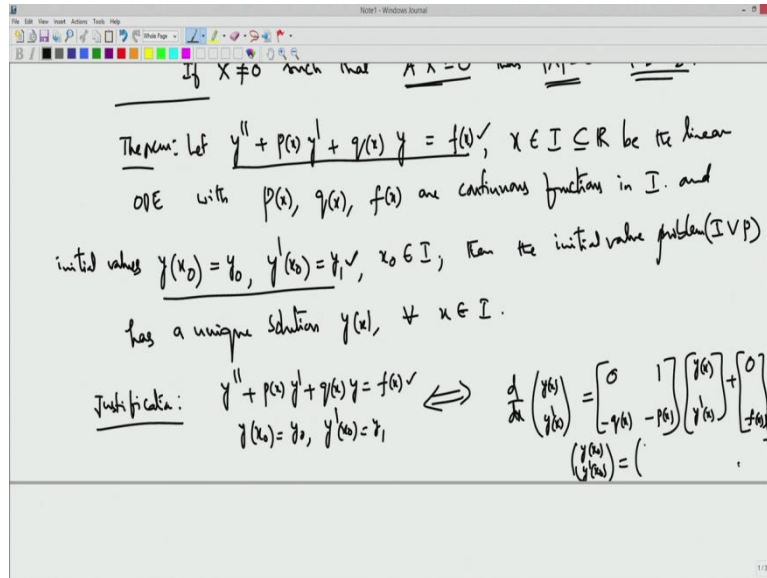 Note1 - Windows Journal
File Edit View Insert Actions Tools Help
Whole Page
If X ≠ 0 such that A X = 0
Theorem: Let y'' + p(x) y' + q(x) y = f(x) ✓, x ∈ I ⊆ R be the linear
ODE with p(x), q(x), f(x) are continuous functions in I. and
initial values y(x₀) = y₀, y'(x₀) = y₁ ✓, x₀ ∈ I, then the initial value problem (IVP)
has a unique solution y(x), ∀ x ∈ I.
Justification: y'' + p(x) y' + q(x) y = f(x) ✓ ⟺ d/dx (y(x) y'(x)) = [0 1 -q(x) -p(x)] [y(x) y'(x)] + [0 f(x)]
y(x₀) = y₀, y'(x₀) = y₁
(y(x₀) y'(x₀)) = (
1/3